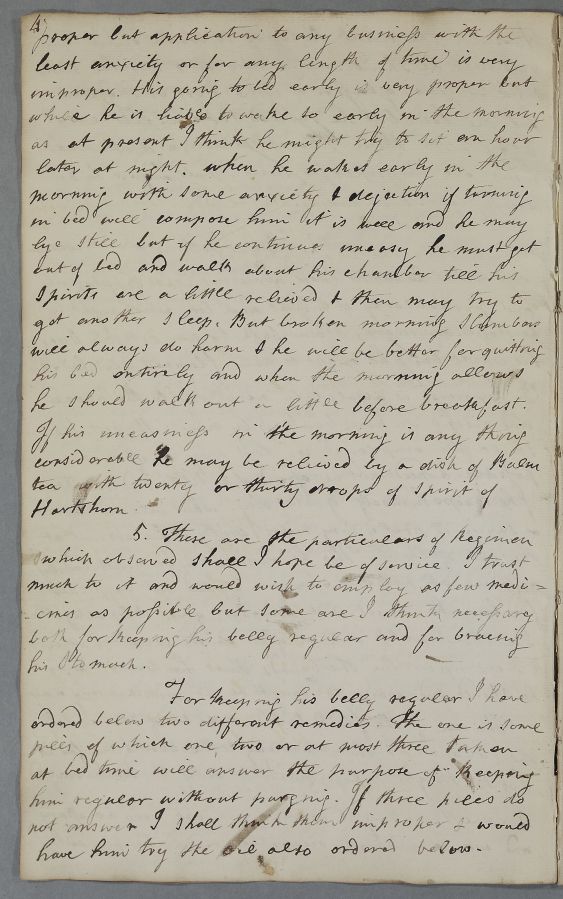 4
proper but application to any business with the
least anxiety or for any length of time is very
improper. His going to bed early is very proper but
while he is liable to wake so early in the morning
as at present I think he might try to sit an hour
later at night. when he wakes early in the
morning with some anxiety & dejection if turning
in bed will compose him it is well and he may
lye still but if he continues uneasy he must get
out of bed and walk about his chamber till his
Spirits are a little relieved & then may try to
get another sleep. But broken morning Slumbers
will always do harm & he will be better for quitting
his bed entirely and when the morning allows
he should walk out a little before breakfast.
If his uneasiness in the morning is any thing
considerable he may be relieved by a dish of Balm
tea with twenty or thirty drops of Spirit of
Hartshorn.
5. These are the particulars of Regimen
which observed shall I hope be of service. I trust
much to it and would wish to employ as few medi=
=cines as possible but some are I think necessary
both for keeping his belly regular and for bracing
his Stomach.
For keeping his belly regular I have
ordered below two different remedies. The one is some
pills of which one, two or at most three taken
at bed time will answer the purpose of keeping
him regular without purging. If three pills do
not answer I shall think them improper & would
have him try the oil also ordered below.